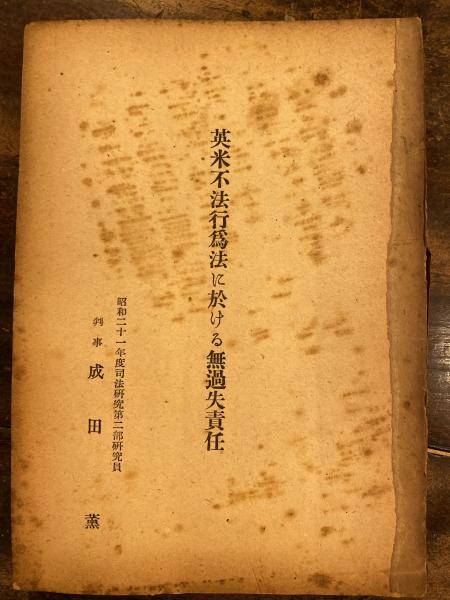 英米不法行爲法に於ける無過失責任
昭和二十一年度司法研究第二部研究員
判事 成田薫